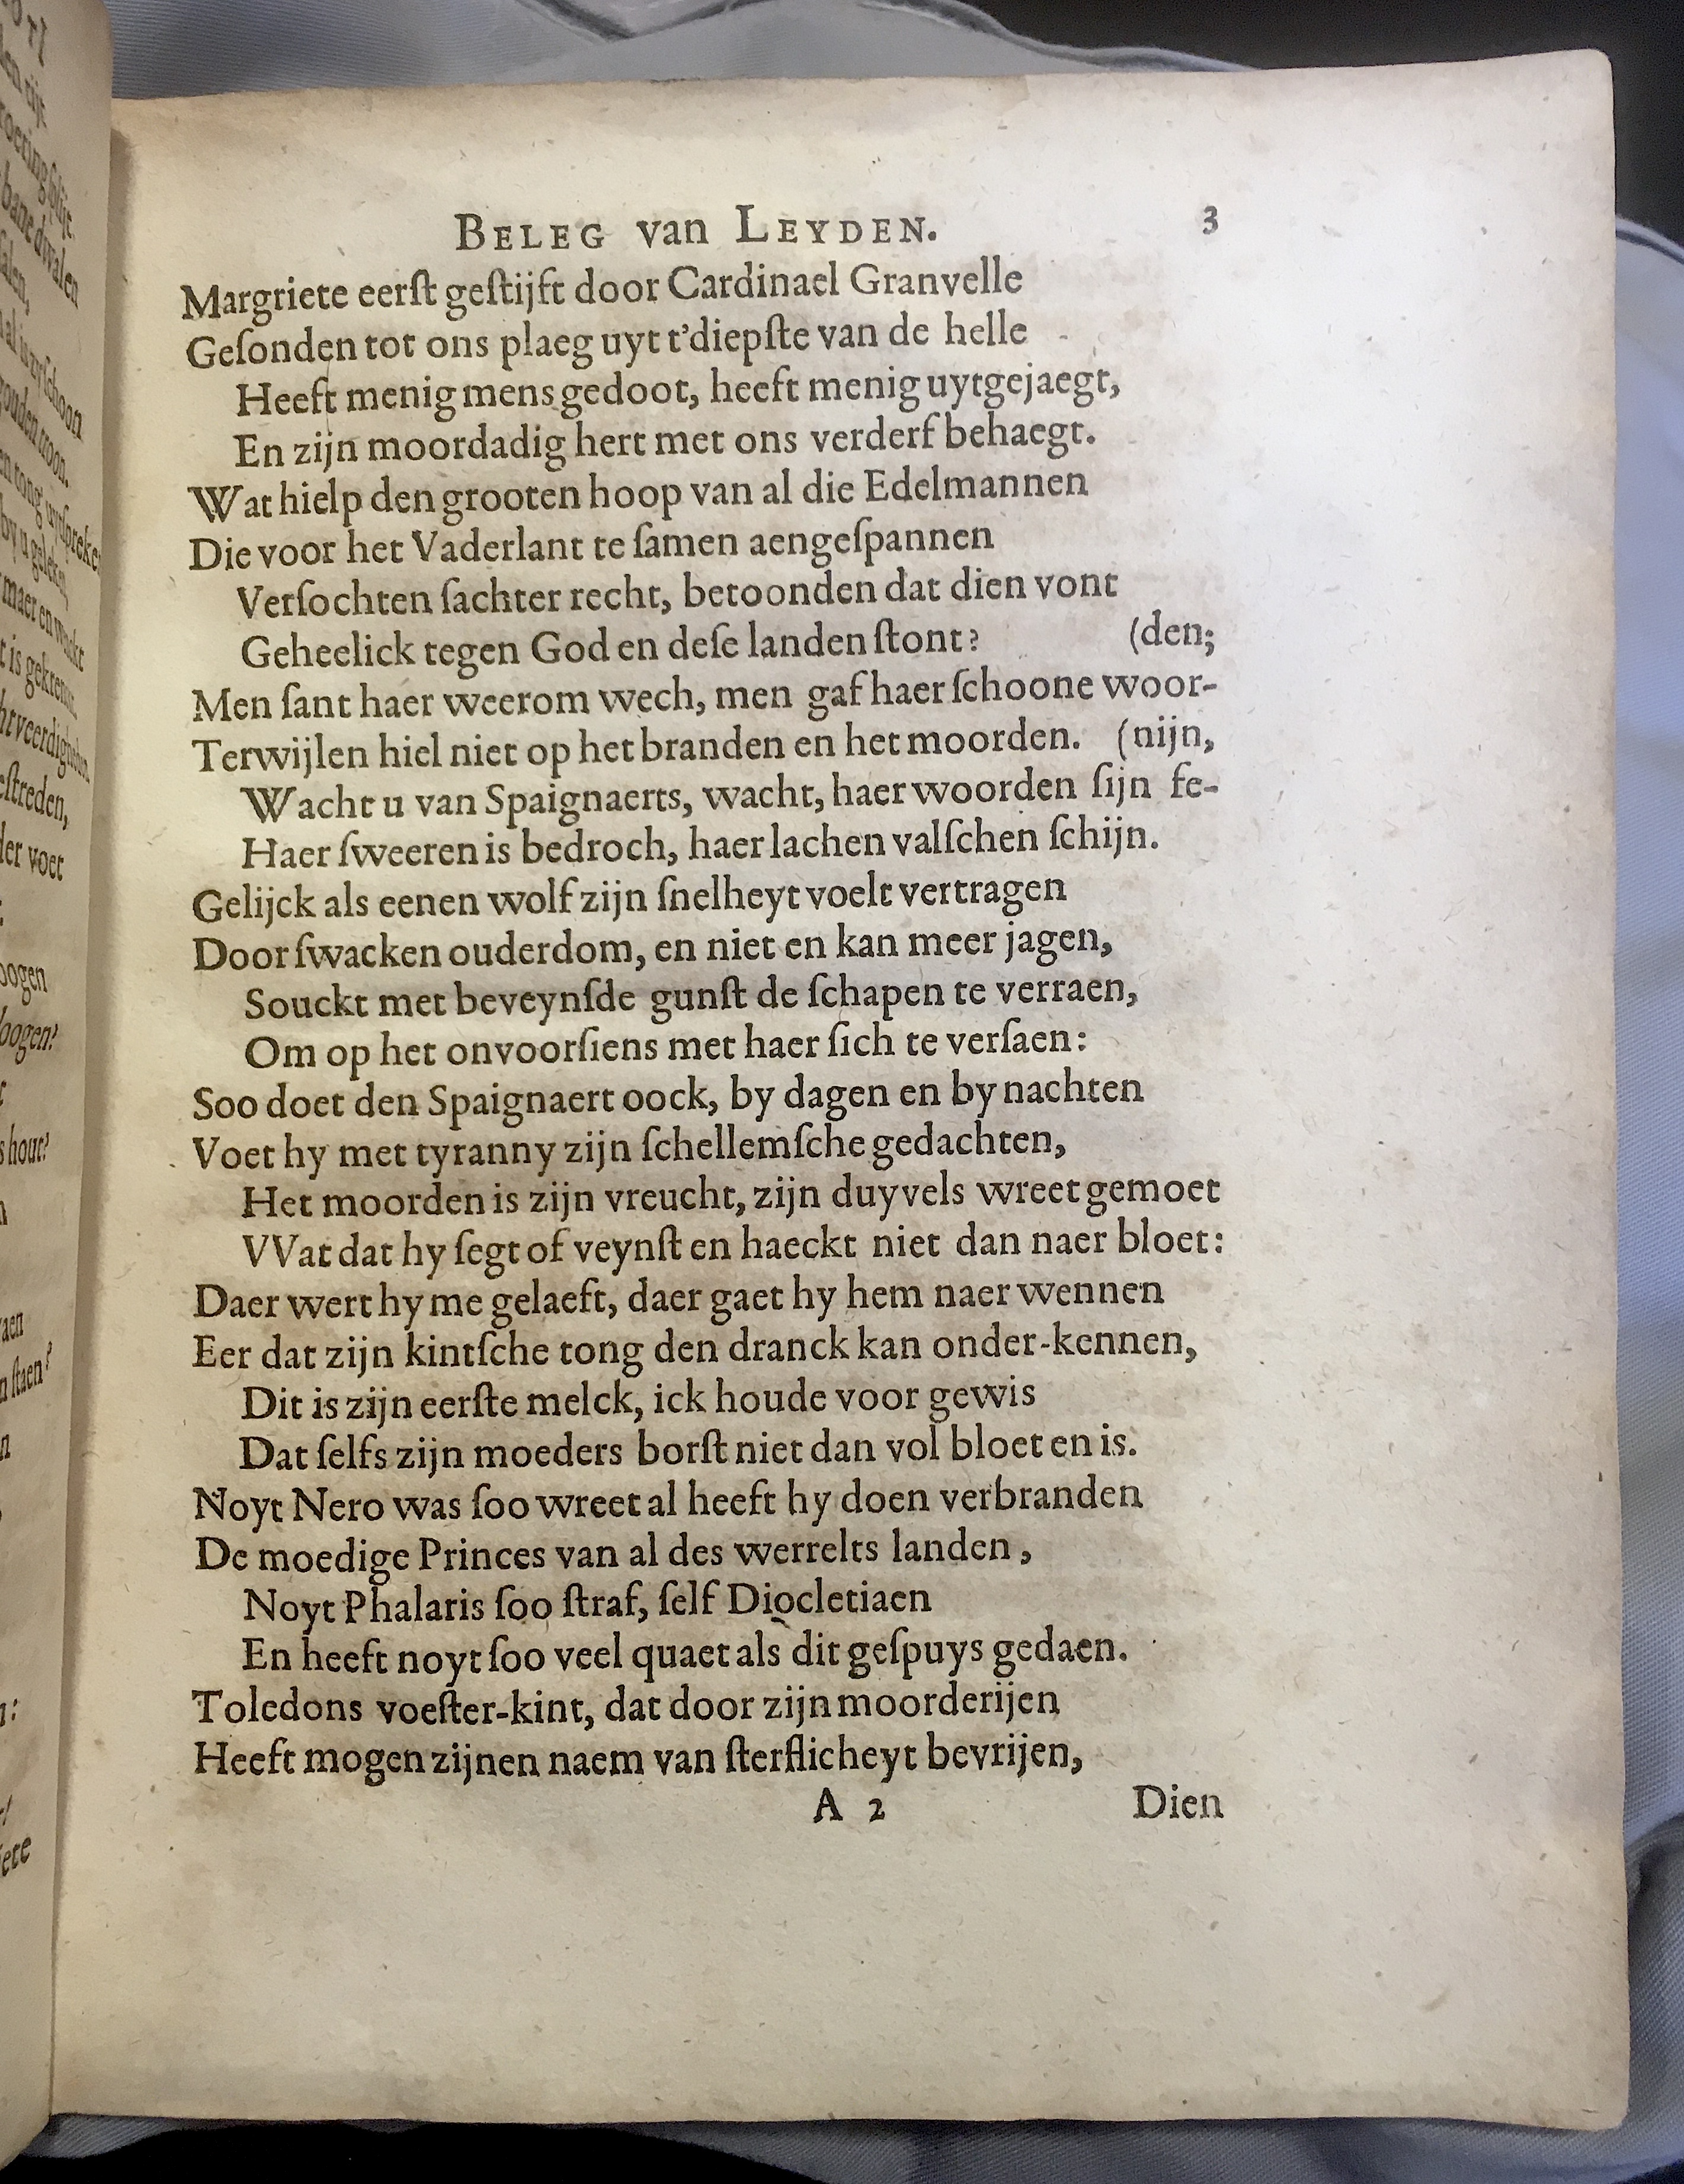 BELEG van LEYDEN. 3
Margriete eerſt geſtijft door Cardinael Granvelle
Geſonden tot ons plaeg uyt t'diepſte van de helle
Heeft menig mens gedoot, heeft menig uytgejaegt,
En zijn moordadig hert met ons verderf behaegt.
Wat hielp den grooten hoop van al die Edelmannen
Die voor het Vaderlant te ſamen aengeſpannen
Verſochten ſachter recht, betoonden dat dien vont
Geheelick tegen God en deſe landen ſtont? (den;
Men ſant haer weerom wech, men gaf haer ſchoone woor-
Terwijlen hiel niet op het branden en het moorden. (nijn,
Wacht u van Spaignaerts, wacht, haer woorden ſijn fe-
Haer ſweeren is bedroch, haer lachen valſchen ſchijn.
Gelijck als eenen wolf zijn ſnelheyt voelt vertragen
Door ſwacken ouderdom, en niet en kan meer jagen,
Souckt met beveynſde gunſt de ſchapen te verraen,
Om op het onvoorſiens met haer ſich te verſaen:
Soo doet den Spaignaert oock, by dagen en by nachten
Voet hy met tyranny zijn ſchellemſche gedachten,
Het moorden is zijn vreucht, zijn duyvels wreet gemoet
VVat dat hy ſegt of veynſt en haeckt niet dan naer bloet:
Daer wert hy me gelaeft, daer gaet hy hem naer wennen
Eer dat zijn kintſche tong den dranck kan onder-kennen,
Dit is zijn eerſte melck, ick houde voor gewis
Dat ſelfs zijn moeders borſt niet dan vol bloet en is.
Noyt Nero was ſoo wreet al heeft hy doen verbranden
De moedige Princes van al des werrelts landen,
Noyt Phalaris ſoo ſtraf, ſelf Diocletiaen
En heeft noyt ſoo veel quaet als dit geſpuys gedaen.
Toledons voeſter-kint, dat door zijn moorderijen
Heeft mogen zijnen naem van ſterflicheyt bevrijen,
A 2 Dien